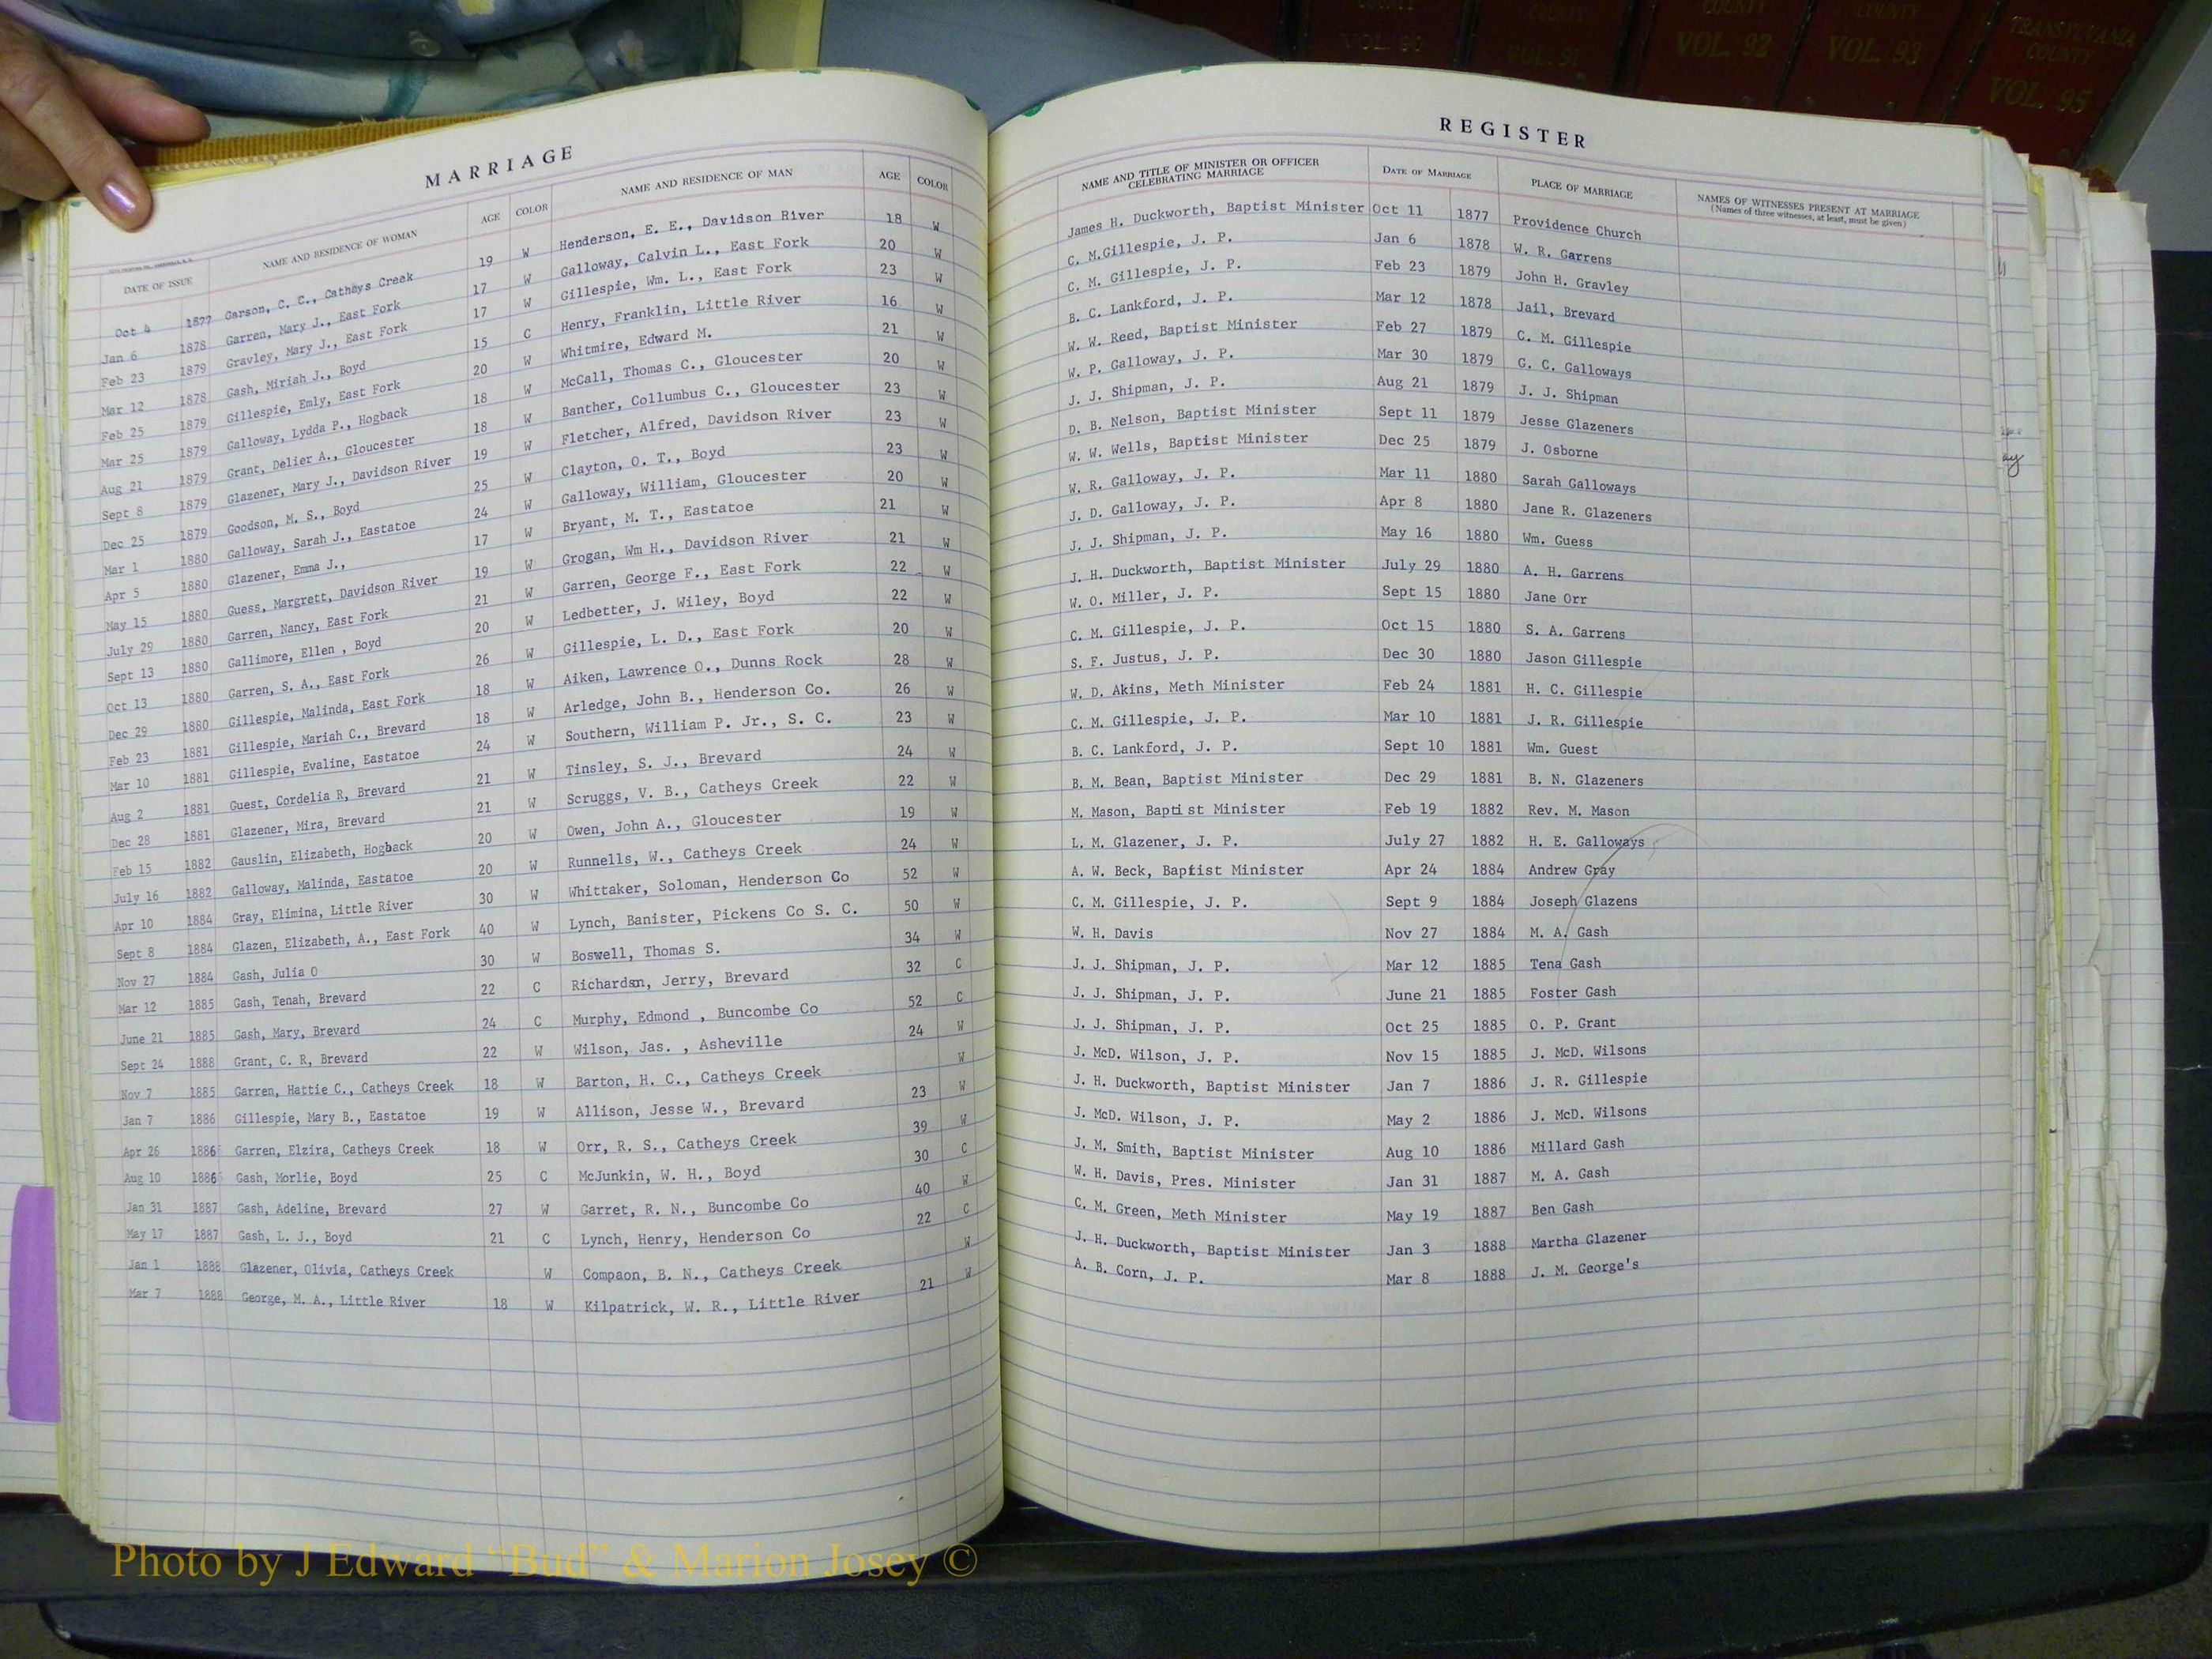 COUNTY VOL. 90
COUNTY VOL. 91
COUNTY VOL. 92
COUNTY VOL. 93
TRANSYLVANIA COUNTY VOL. 95
MARRIAGE
DATE OF ISSUE NAME AND RESIDENCE OF WOMAN AGE COLOR NAME AND RESIDENCE OF MAN AGE COLOR
Oct 4 1877 Carson, C. C., Catheys Creek 19 W Henderson, E. E., Davidson River 18 W
Jan 6 1878 Garren, Mary J., East Fork 17 W Galloway, Calvin L., East Fork 20 W
Feb 23 1879 Gravley, Mary J., East Fork 17 W Gillespie, Wm. L., East Fork 23 W
Mar 12 1878 Gash, Miriah J., Boyd 15 C Henry, Franklin, Little River 16 W
Feb 25 1879 Gillespie, Emly, East Fork 20 W Whitmire, Edward M. 21 W
Mar 25 1879 Galloway, Lydda P., Hogback 18 W McCall, Thomas C., Gloucester 20 W
Aug 21 1879 Grant, Delier A., Gloucester 18 W Banther, Collumbus C., Gloucester 23 W
Sept 8 1879 Glazener, Mary J., Davidson River 19 W Fletcher, Alfred, Davidson River 23 W
Dec 25 1879 Goodson, M. S., Boyd 25 W Clayton, O. T., Boyd 23 W
Mar 1 1880 Galloway, Sarah J., Eastatoe 24 W Galloway, William, Gloucester 20 W
Apr 5 1880 Glazener, Emma J., 17 W Bryant, M. T., Eastatoe 21 W
May 15 1880 Guess, Margrett, Davidson River 19 W Grogan, Wm H., Davidson River 21 W
July 29 1880 Garren, Nancy, East Fork 21 W Garren, George F., East Fork 22 W
Sept 13 1880 Gallimore, Ellen , Boyd 20 W Ledbetter, J. Wiley, Boyd 22 W
Oct 13 1880 Garren, S. A., East Fork 26 W Gillespie, L. D., East Fork 20 W
Dec 29 1880 Gillespie, Malinda, East Fork 18 W Aiken, Lawrence O., Dunns Rock 28 W
Feb 23 1881 Gillespie, Mariah C., Brevard 18 W Arledge, John B., Henderson Co. 26 W
Mar 10 1881 Gillespie, Evaline, Eastatoe 24 W Southern, William P. Jr., S. C. 23 W
Aug 2 1881 Guest, Cordelia R, Brevard 21 W Tinsley, S. J., Brevard 24 W
Dec 28 1881 Glazener, Mira, Brevard 21 W Scruggs, V. B., Catheys Creek 22 W
Feb 15 1882 Gauslin, Elizabeth, Hogback 20 W Owen, John A., Gloucester 19 W
July 16 1882 Galloway, Malinda, Eastatoe 20 W Runnells, W., Catheys Creek 24 W
Apr 10 1884 Gray, Elimina, Little River 30 W Whittaker, Soloman, Henderson Co 52 W
Sept 8 1884 Glazen, Elizabeth, A., East Fork 40 W Lynch, Banister, Pickens Co S. C. 50 W
Nov 27 1884 Gash, Julia O 30 W Boswell, Thomas S. 34 W
Mar 12 1885 Gash, Tenah, Brevard 22 C Richardson, Jerry, Brevard 32 C
June 21 1885 Gash, Mary, Brevard 24 C Murphy, Edmond , Buncombe Co 52 C
Sept 24 1888 Grant, C. R, Brevard 22 W Wilson, Jas. , Asheville 24 W
Nov 7 1885 Garren, Hattie C., Catheys Creek 18 W Barton, H. C., Catheys Creek W
Jan 7 1886 Gillespie, Mary B., Eastatoe 19 W Allison, Jesse W., Brevard 23 W
Apr 26 1886 Garren, Elzira, Catheys Creek 18 W Orr, R. S., Catheys Creek 39 W
Aug 10 1886 Gash, Morlie, Boyd 25 C McJunkin, W. H., Boyd 30 C
Jan 31 1887 Gash, Adeline, Brevard 27 W Garret, R. N., Buncombe Co 40 W
May 17 1887 Gash, L. J., Boyd 21 C Lynch, Henry, Henderson Co 22 C
Jan 1 1888 Glazener, Olivia, Catheys Creek W Compaon, B. N., Catheys Creek W
Mar 7 1888 George, M. A., Little River 18 W Kilpatrick, W. R., Little River 21 W
REGISTER
NAME AND TITLE OF MINISTER OR OFFICER CELEBRATING MARRIAGE DATE OF MARRIAGE PLACE OF MARRIAGE NAMES OF WITNESSES PRESENT AT MARRIAGE
(Names of three witnesses, at least, must be given)
James H. Duckworth, Baptist Minister Oct 11 1877 Providence Church
C. M.Gillespie, J. P. Jan 6 1878 W. R. Garrens
C. M. Gillespie, J. P. Feb 23 1879 John H. Gravley
B. C. Lankford, J. P. Mar 12 1878 Jail, Brevard
W. W. Reed, Baptist Minister Feb 27 1879 C. M. Gillespie
W. P. Galloway, J. P. Mar 30 1879 G. C. Galloways
J. J. Shipman, J. P. Aug 21 1879 J. J. Shipman
D. B. Nelson, Baptist Minister Sept 11 1879 Jesse Glazeners
W. W. Wells, Baptist Minister Dec 25 1879 J. Osborne
W. R. Galloway, J. P. Mar 11 1880 Sarah Galloways
J. D. Galloway, J. P. Apr 8 1880 Jane R. Glazeners
J. J. Shipman, J. P. May 16 1880 Wm. Guess
J. H. Duckworth, Baptist Minister July 29 1880 A. H. Garrens
W. O. Miller, J. P. Sept 15 1880 Jane Orr
C. M. Gillespie, J. P. Oct 15 1880 S. A. Garrens
S. F. Justus, J. P. Dec 30 1880 Jason Gillespie
W. D. Akins, Meth Minister Feb 24 1881 H. C. Gillespie
C. M. Gillespie, J. P. Mar 10 1881 J. R. Gillespie
B. C. Lankford, J. P. Sept 10 1881 Wm. Guest
B. M. Bean, Baptist Minister Dec 29 1881 B. N. Glazeners
M. Mason, Baptist Minister Feb 19 1882 Rev. M. Mason
L. M. Glazener, J. P. July 27 1882 H. E. Galloways
A. W. Beck, Baptist Minister Apr 24 1884 Andrew Gray
C. M. Gillespie, J. P. Sept 9 1884 Joseph Glazens
W. H. Davis Nov 27 1884 M. A. Gash
J. J. Shipman, J. P. Mar 12 1885 Tena Gash
J. J. Shipman, J. P. June 21 1885 Foster Gash
J. J. Shipman, J. P. Oct 25 1885 O. P. Grant
J. McD. Wilson, J. P. Nov 15 1885 J. McD. Wilsons
J. H. Duckworth, Baptist Minister Jan 7 1886 J. R. Gillespie
J. McD. Wilson, J. P. May 2 1886 J. McD. Wilsons
J. M. Smith, Baptist Minister Aug 10 1886 Millard Gash
W. H. Davis, Pres. Minister Jan 31 1887 M. A. Gash
C. M. Green, Meth Minister May 19 1887 Ben Gash
J. H. Duckworth, Baptist Minister Jan 3 1888 Martha Glazener
A. B. Corn, J. P. Mar 8 1888 J. M. George's
Photo by J Edward “Bud” & Marion Josey ©